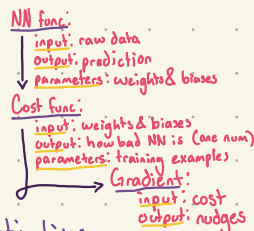 NN func:
input: raw data
output: prediction
parameters: weights & biases
Cost func:
input: weights & biases
output: how bad NN is (one num)
parameters: training examples
Gradient:
input: cost
output: nudges